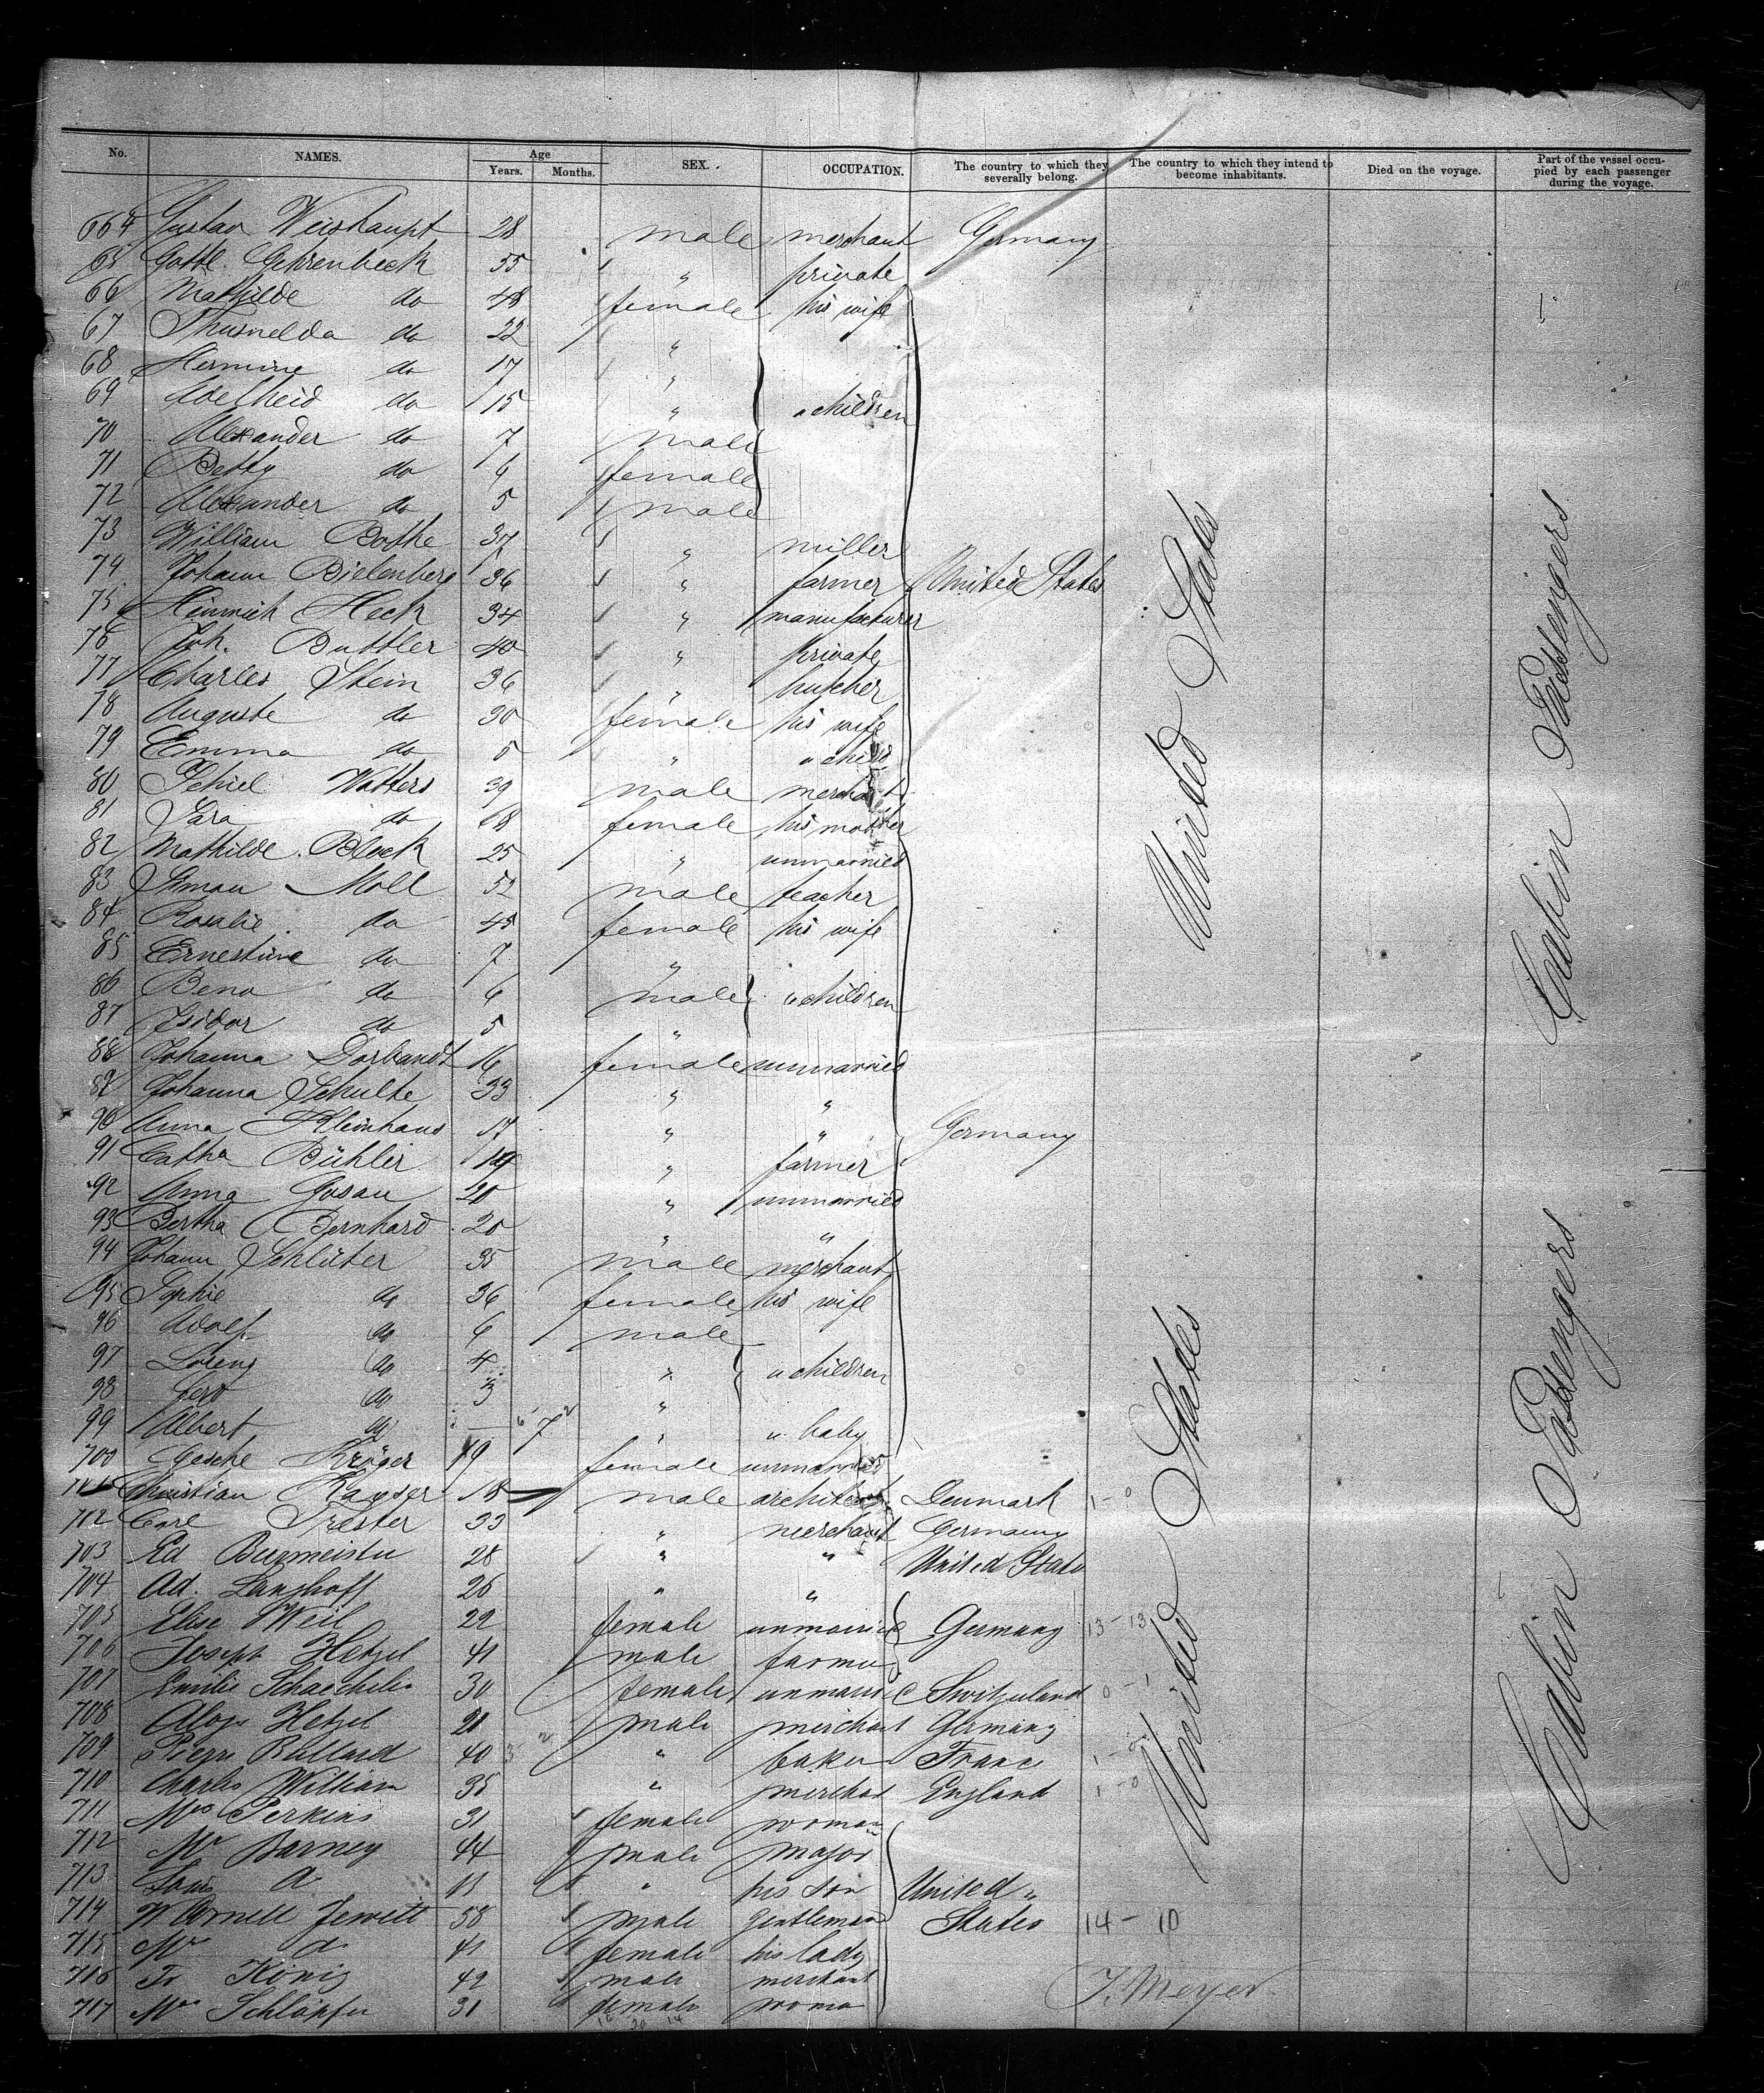 No. NAMES. Age Years. Months. SEX. OCCUPATION. The country to which they severally belong. The country to which they intend to become inhabitants. Died on the voyage. Part of the vessel occupied by each passenger during the voyage.
664 Gustav Weishaupt 28 male merchant Germany
65 Gottl. Gehrenbeck 55 " private
66 Mathilde do 48 female his wife
67 Thusnelda do 22 "
68 Hermine do 17 "
69 Adelheid do 15 " " children
70 Alexander do 7 male
71 Betty do 6 female
72 Alexander do 5 male
73 William Bothe 37 " miller
74 Johann Bielenberg 36 " farmer United States
75 Hinrich Heck 34 " manufacturer
76 Joh. Buttler 40 " private
77 Charles Stein 36 " butcher
78 Auguste do 30 female his wife
79 Emma do 5 " " child
80 Schiel Watters 39 male merchant
81 Sara do 68 female his mother
82 Mathilde Block 25 " unmarried
83 Simon Moll 52 male teacher
84 Rosalie do 45 female his wife
85 Ernestine do 7 "
86 Beno do 6 male " children
87 Isidor do 5 "
88 Johanna Dorbandt 16 female unmarried
89 Johanna Schulte 33 " "
90 Anna Kleinhaus 17 " " Germany
91 Catha Bühler 19 " farmer
92 Anna Gosau 20 " unmarried
93 Bertha Bernhard 20 " "
94 Johann Schlüter 35 male merchant
95 Sophie do 36 female his wife
96 Adolf do 6 male
97 Lorenz do 4 " " children
98 Ferd do 3 "
99 Albert do 7 " " baby
700 Gesche Kröger 19 female unmarried
Christian Kayser 18 male architect Denmark 1-0
702 Carl Trester 33 " merchant Germany
703 Ed Burmeister 28 " " United States
704 Ad. Langhoff 26 " "
705 Elise Weil 22 female unmarried Germany 13-13
706 Joseph Hetzel 41 male farmer
707 Emilie 30 female unmarried Switzerland 0-1
708 Aloys Hetzel 20 male merchant Germany
709 Pierre Ballard 40 " baker France
710 Charles William 35 " merchant England 1-0
711 Mrs Perkins 31 female woman
712 Mr Barney 44 male major
713 Louis do 11 " his son United "
714 W Cornell Jewett 58 male gentleman States 14-10
715 Mrs do 41 female his lady
716 Fr König 42 male merchant
717 Mrs Schläpfer 31 female woman
United States
United States
Cabin Passengers
Cabin Passengers
J. Meyer